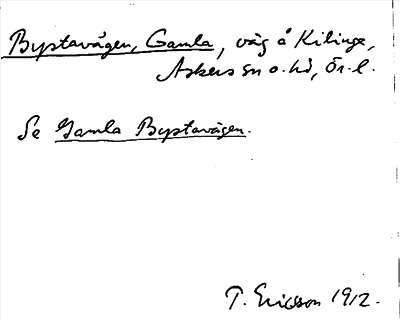 Bystavägen, Gamla, väg å Kilinge,
Askers sn o. hd, Ör. l.
Se Gamla Bystavägen.
T. Ericsson 1912.